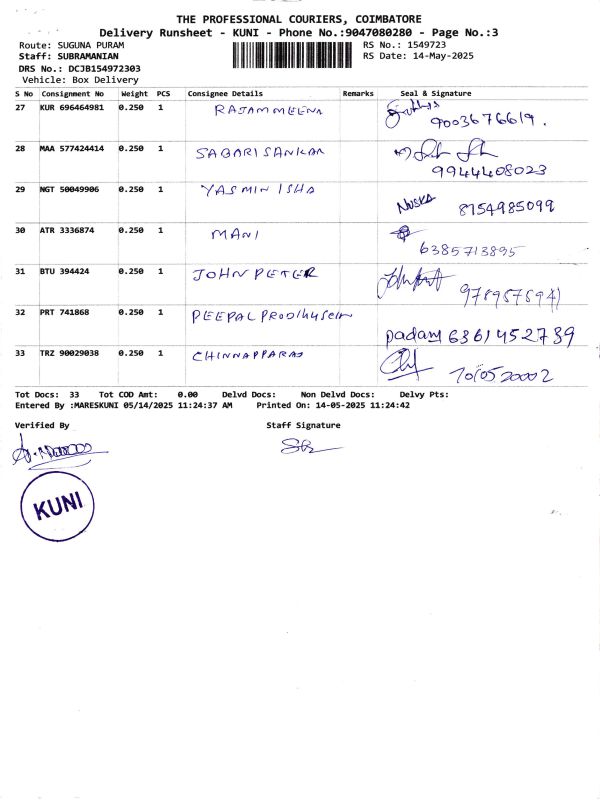 THE PROFESSIONAL COURIERS, COIMBATORE
Delivery Runsheet - KUNI - Phone No.:9047080280 - Page No.:3
Route: SUGUNA PURAM RS No.: 1549723
Staff: SUBRAMANIAN RS Date: 14-May-2025
DRS No.: DCJB154972303
Vehicle: Box Delivery
S No Consignment No Weight PCS Consignee Details Remarks Seal & Signature
27 KUR 696464981 0.250 1 RAJAMMEENA
9003676619.
28 MAA 577424414 0.250 1 SABARISANKAR
9944408023
29 NGT 50049906 0.250 1 YASMIN ISHA
NUSKA 8754985099
30 ATR 3336874 0.250 1 MANI
6385713895
31 BTU 394424 0.250 1 JOHN PETER
32 PRT 741868 0.250 1
padam 6361452739
33 TRZ 90029038 0.250 1 CHINNAPPARAJ
Tot Docs: 33 Tot COD Amt: 0.00 Delvd Docs: Non Delvd Docs: Delvy Pts:
Entered By :MARESKUNI 05/14/2025 11:24:37 AM Printed On: 14-05-2025 11:24:42
Verified By Staff Signature
KUNI